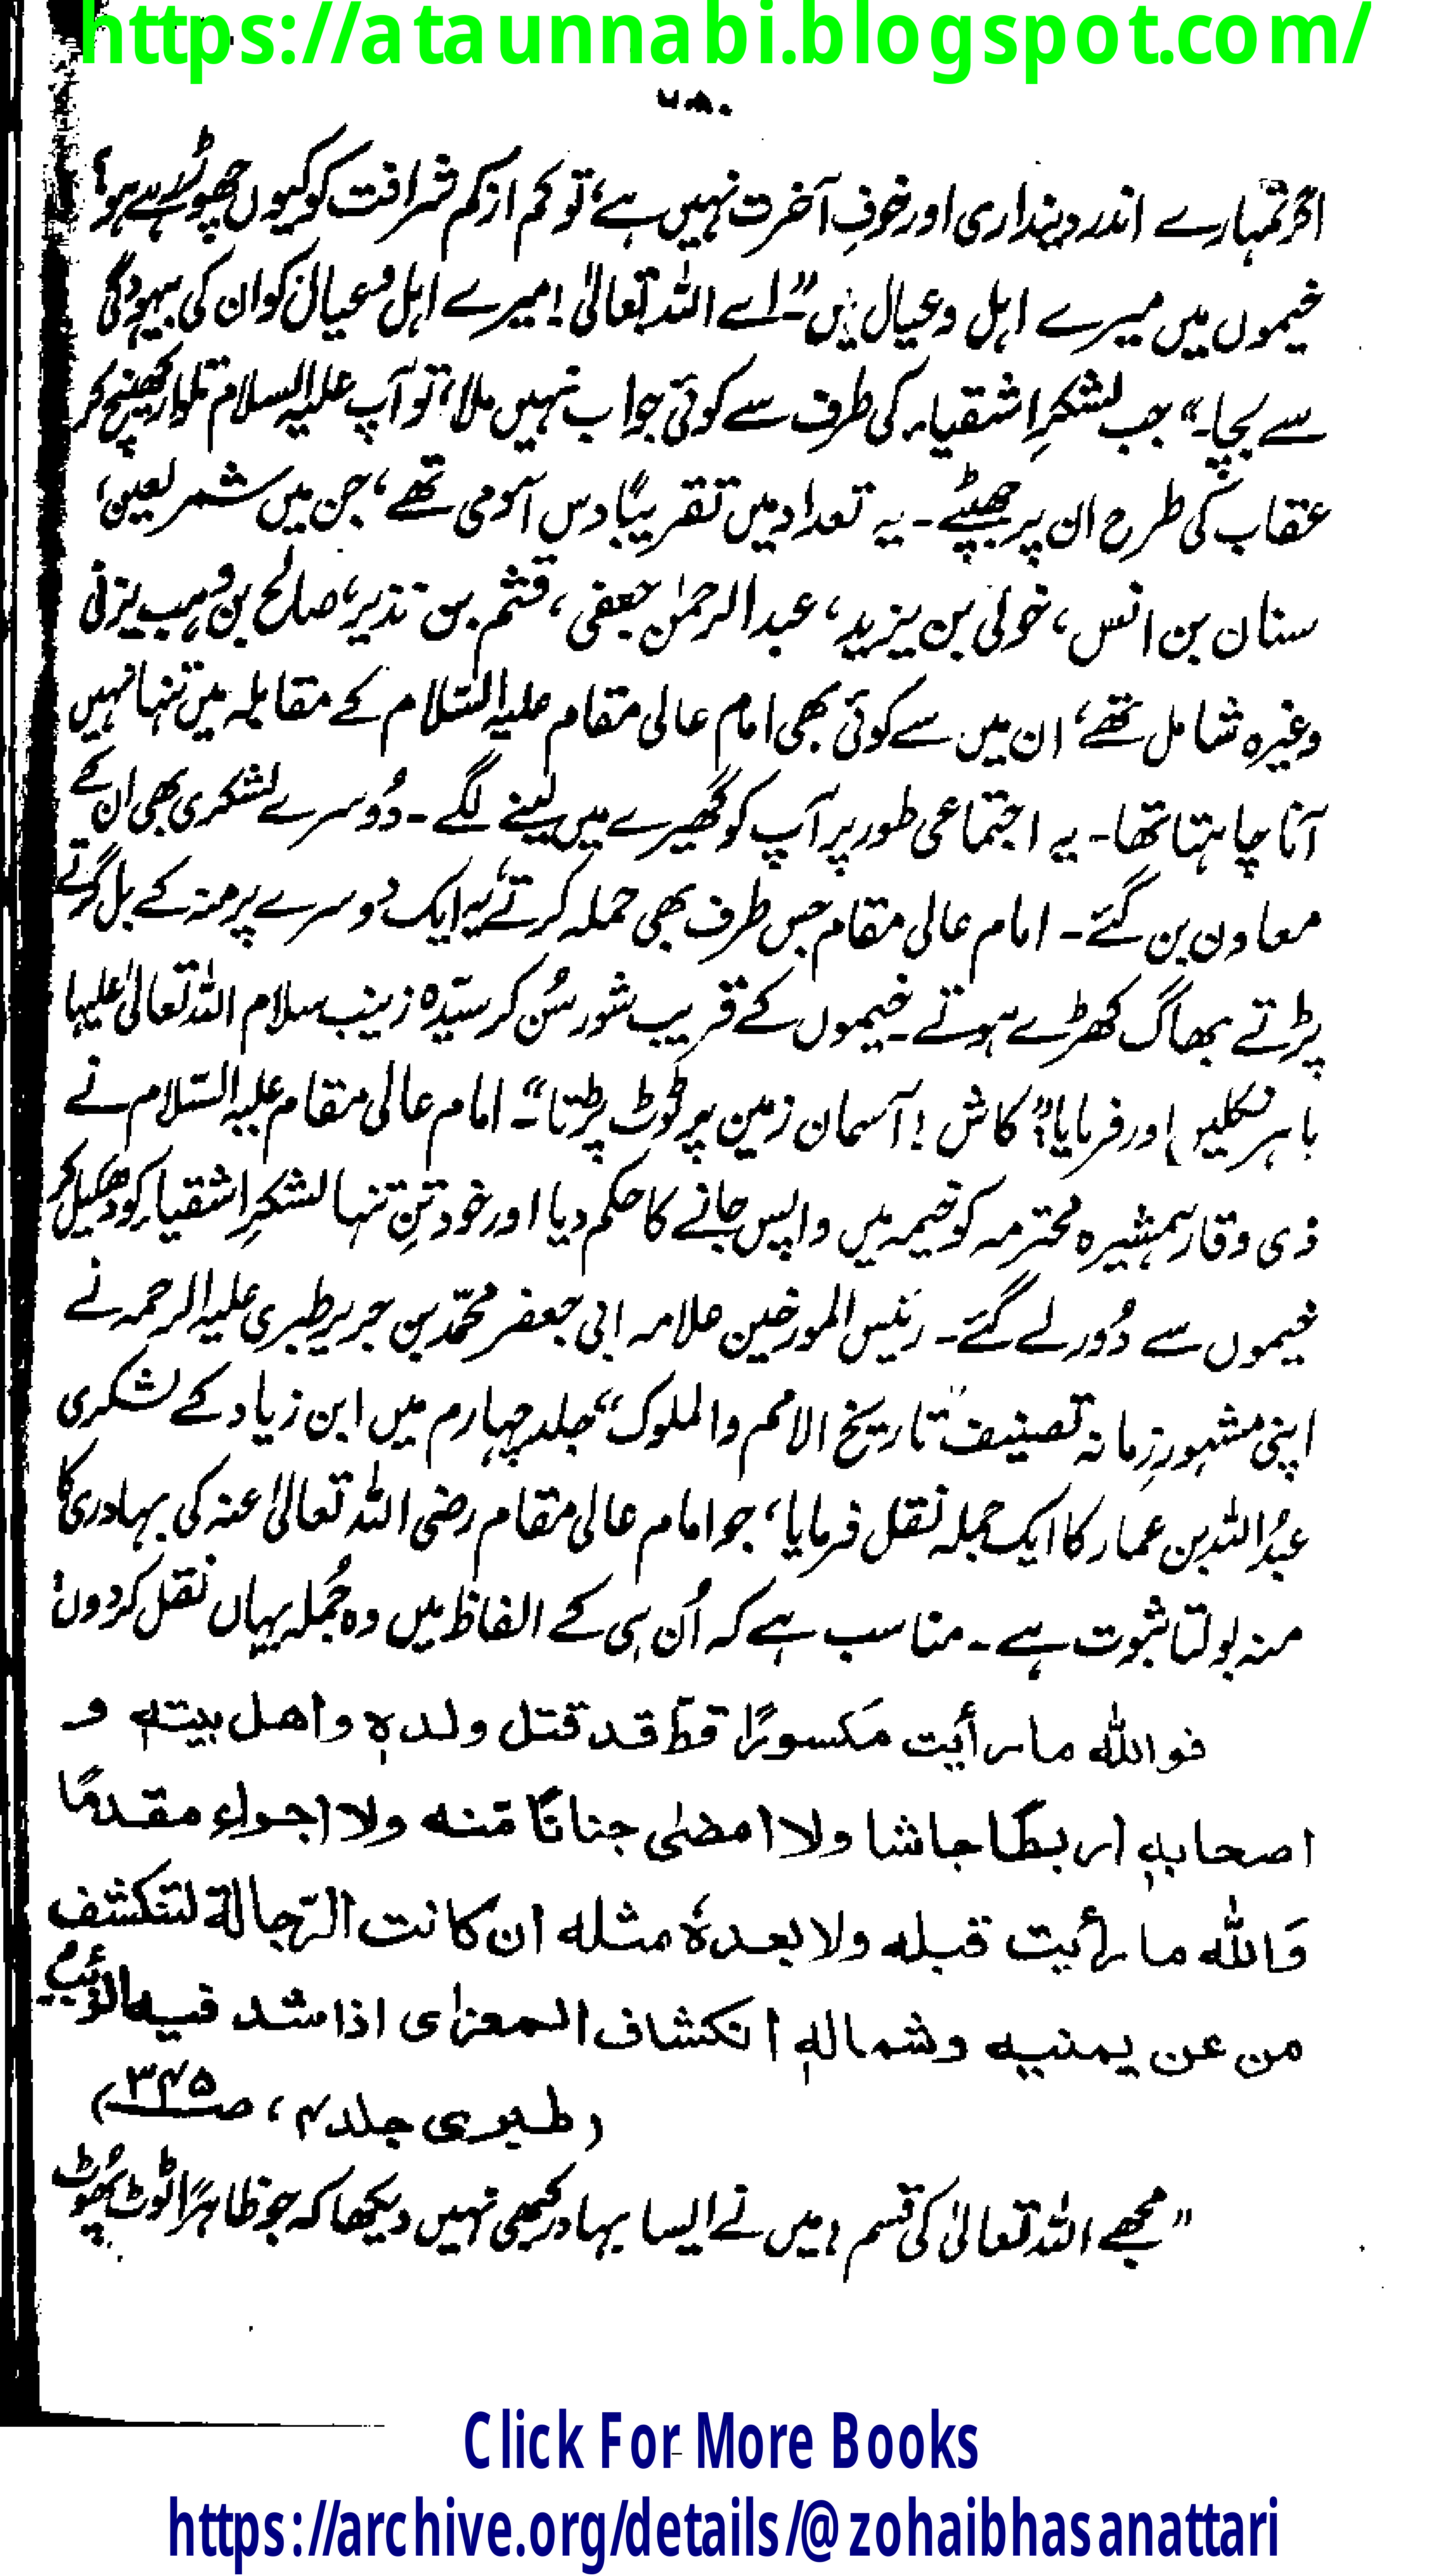 https://ataunnabi.blogspot.com/
اگر تمہارے اندر دینداری اور خوفِ آخرت نہیں ہے، تو کم از کم شرافت کو کیوں چھوڑ رہے ہو؟
خیموں میں میرے اہل و عیال ہیں"۔ اے اللہ تعالیٰ! میرے اہل و عیال کو ان کی بیہودگی
سے بچا۔" جب لشکرِ اشقیاء کی طرف سے کوئی جواب نہیں ملا، تو آپ علیہ السلام تلوار کھینچ کر
عقاب کی طرح ان پر جھپٹے۔ یہ تعداد میں تقریباً دس آدمی تھے، جن میں شمر لعین،
سنان بن انس، خولی بن یزید، عبد الرحمٰن جعفی، قثم بن نذیر، صالح بن وہب یزنی
وغیرہ شامل تھے، ان میں سے کوئی بھی امام عالی مقام علیہ السّلام کے مقابلہ میں تنہا نہیں
آنا چاہتا تھا۔ یہ اجتماعی طور پر آپ کو گھیرے میں لینے لگے۔ دُوسرے لشکری بھی ان کے
معاون بن گئے۔ امام عالی مقام جس طرف بھی حملہ کرتے، یہ ایک دوسرے پر منہ کے بل گرتے
پڑتے بھاگ کھڑے ہوتے۔ خیموں کے قریب شور سُن کر سیّدہ زینب سلام اللہ تعالیٰ علیہا
باہر نکلیں اور فرمایا: "کاش! آسمان زمین پر ٹوٹ پڑتا"۔ امام عالی مقام علیہ السّلام نے
ذی وقار ہمشیرہ محترمہ کو خیمہ میں واپس جانے کا حکم دیا اور خود تنِ تنہا لشکرِ اشقیاء کو دھکیل کر
خیموں سے دُور لے گئے۔ رئیس المورخین علامہ ابی جعفر محمّد بن جریر طبری علیہ الرحمہ نے
اپنی مشہورِ زمانہ تصنیف "تاریخ الامم والملوک" جلد چہارم میں ابن زیاد کے لشکری
عبدُ اللہ بن عمار کا ایک جملہ نقل فرمایا، جو امام عالی مقام رضی اللہ تعالیٰ عنہ کی بہادری کا
منہ بولتا ثبوت ہے۔ مناسب ہے کہ اُن ہی کے الفاظ میں وہ جُملہ یہاں نقل کر دوں:
فوالله ما رأيت مكسورًا قطّ قد قتل ولده واهل بيته و
اصحابه اربطا جاشا ولا امضىٰ جنانًا مّنه ولا اجراء مقدمًا
وَالله ما رأيت قبله ولا بعدهٗ مثله ان كانت الرّجالة لتنكشف
من عن يمنيه وشماله انكشاف المعزاى اذا شد فيه الذئب
(طبری جلد ۴، ص ۳۴۵)
"مجھے اللہ تعالیٰ کی قسم! میں نے ایسا بہادر کبھی نہیں دیکھا کہ جو ظاہراً ٹوٹ پھُوٹ
Click For More Books
https://archive.org/details/@zohaibhasanattari